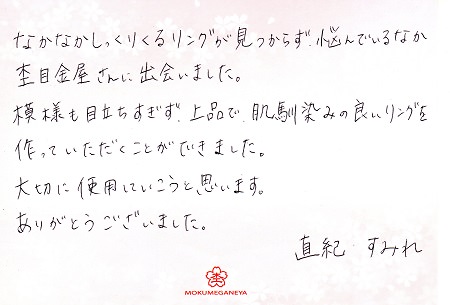 なかなかしっくりくるリングが見つからず、悩んでいるなか
杢目金屋さんに出会いました。
模様も目立ちすぎず、上品で、肌馴染みの良いリングを
作っていただくことができました。
大切に使用していこうと思います。
ありがとうございました。
直紀　すみれ
杢
MOKUMEGANEYA